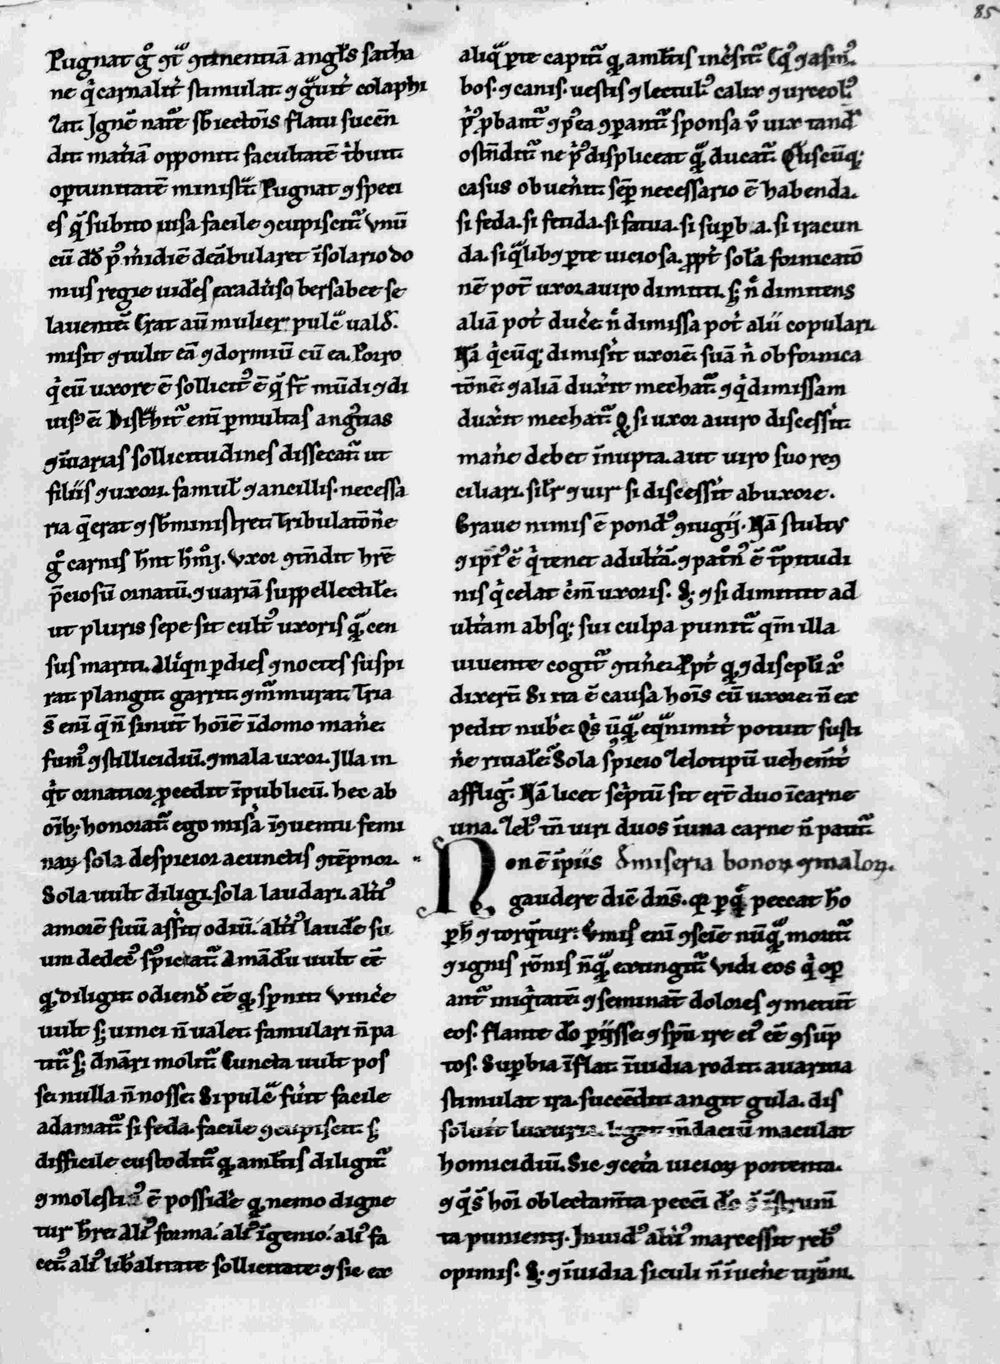 85
Pugnat gͦ ꝯtᷓ ꝯtinentiā angl̄s satha
ne q̇ carnalit̄ stimulat. ꝯ gᷓuit̄ colaphi
zat. Ignē natᷓe sb̄iectōis flatu succen
dit. mat̄iā opponit. facultatē t̄buit.
oꝑtunitatē minist̄t. Pugnat ⁊ speci
es qᷓ subito uisa facile ꝯcupiscitᷓ. Vnū
cū dđ pꝰ m̄idiē deābularet ī solario do
mus regie uidēs ex aduso bersabee se
lauentē. Erat aū mulier pulcᷓ uald̄.
misit ⁊ tulit eā ⁊ dormiū cū ea. Porro
q̇ cū uxore ē sollicitꝰ ē q̄ st̄ mūdi ⁊ di
uisꝰ ē. Dist̄hitᷓ enī ꝑ multas angꝰtias
⁊ ī uarias sollicitudines dissecatᷓ ut
filiis ⁊ uxori. famul̄ ⁊ ancillis. necessa
ria q̄rat ⁊ sb̄ministret. Tribulatōne
gͦ carnis hn̄t hmͦi. Vxor ꝯtn̄dit hr̄e
p̄ciosū ornatū. ⁊ uariā suppellectilē.
ut pluris sepe sit cultꝰ uxoris qᷓ cen
sus mariti. Aliqn̄ ꝑ dies ⁊ noctes suspi
rat. plangit. garrit. ⁊ m̄murat. Tria
s̄ enī q̄ n̄ sinūt hoīē ī domo manē.
fumꝰ ⁊ stillicidiū. ⁊ mala uxor. Illa in
q̇t ornatior ꝓcedit ī publicū. hec ab
oīb; honoratᷓ. ego misa ī ꝯuentu femi
naꝝ sola despicior a cunctis ꝯtēpnor.
Sola uult diligi. sola laudari. altiꝰ
amorē suū assit̄ odiū. altiꝰ laudē su
um dedecꝰ suspicatᷓ. Amādū uult eē
ꝙ diligit. odiend̄ eē ꝙ spernit. Vincē
uult s; uinci n̄ ualet. famulari n̄ pa
titᷓ. s; dn̄ari molitᷓ. Cuncta uult pos
se. nulla n̄ nosse. Si pulcᷓ fūit facile
adamatᷓ. si feda. facile ꝯcupiscit. s;
difficile custoditᷓ ꝙ a multis diligitᷓ
⁊ molestū ē possidē ꝙ nemo digne
tur hr̄e. Aliꝰ forma. aliꝰ īgenio. aliꝰ fa
cetꝰ. aliꝰ lib̄alitate sollicitate. ⁊ sic ex
aliqᷓ ꝑte capitᷓ ꝙ a mlt̄is incēsitᷓ. Eqꝰ ⁊ asinꝰ.
bos. ⁊ canis. uestis ⁊ lectulꝰ. calix ⁊ urceolꝰ
pꝰ ꝓbantᷓ ⁊ pꝰea ꝯꝑantᷓ. sponsa ꝟͦ uix tand̄
ostn̄ditᷓ ne pꝰ displiceat qᷓ ducatᷓ. Quiscūq;
casus obuen̄it. semꝑ necessario ē habenda.
si feda. si fetida. si fatua. si suꝑba. si iracun
da. si q̄libꝫ ꝑte uiciosa. ꝓpt̄ sola fornicatō
nē pot̄ uxor a uiro dimitti. s; n̄ dimittens
aliā pot̄ ducē. n̄ dimissa pot̄ alii copulari.
Nā q̇cūq; dimisit uxorē suā n̄ ob fornica
tōnē. ⁊ aliā duxit mechatᷓ. ⁊ q̇ dimissam
duxit mechatᷓ. Qđ si uxor a uiro discessit.
manē debet īnupta. aut uiro suo reꝯ
ciliari. silr̄ ⁊ uir si discessit ab uxore.
Graue nimis ē pondꝰ ꝯiugij. Nā stultus
⁊ ipiꝰ ē q̇ tenet adultā. ⁊ patōnꝰ ē t̄pitudi
nis q̇ celat c̄m̄ uxoris. S; ⁊ si dimittit ad
ultam absq; sui culpa punitᷓ qm̄ illa
uiuente cogitᷓ ꝯtinē. Ppt̄ ꝙ ⁊ discipl̄i xͦ
dixerūt. Si ita ē causa hoīs cū uxore. n̄ ex
pedit nubē. Qͥs ūqᷓ equanimit̄ potuit susti
nē riualē. Sola suspicio zelotipū uehem̄t̄
affligit. Nā licet sc̄ptū sit erūt duo ī carne
una. Zelꝰ tn̄ uiri duos ī una carne n̄ patitᷓ.
Non ē īpiis đ miseria bonoꝝ ⁊ maloꝝ.
gaudere dicit dn̄s. qr ꝑ qđ peccat ho
ꝑ h̄ ⁊ torq̄tur. Vmis enī ꝯscīe nūqᷓ moritᷓ
⁊ ignis rōnis nūqᷓ extinguitᷓ. Vidi eos q̇ oꝑ
antᷓ iniq̇tatē ⁊ seminant dolores ⁊ metūt
eos. flante do ꝑiisse. ⁊ spū ire eiꝰ eē ꝯsūp
tos. Suꝑbia īflat. īuidia rodit. auaritia
stimulat. ira succendit. angit gula. dis
soluit luxuria. ligat m̄daciū. maculat
homicidiū. Sic ⁊ cet̄a uicioꝝ portenta.
⁊ q̄ s̄ hoī oblectamīta peccāti. do s̄ īstrum
ta punienti. Inuidꝰ altiꝰ marcessit rebꝰ
opimis. S; ⁊ īuidia siculi n̄ īuenē tiranni.